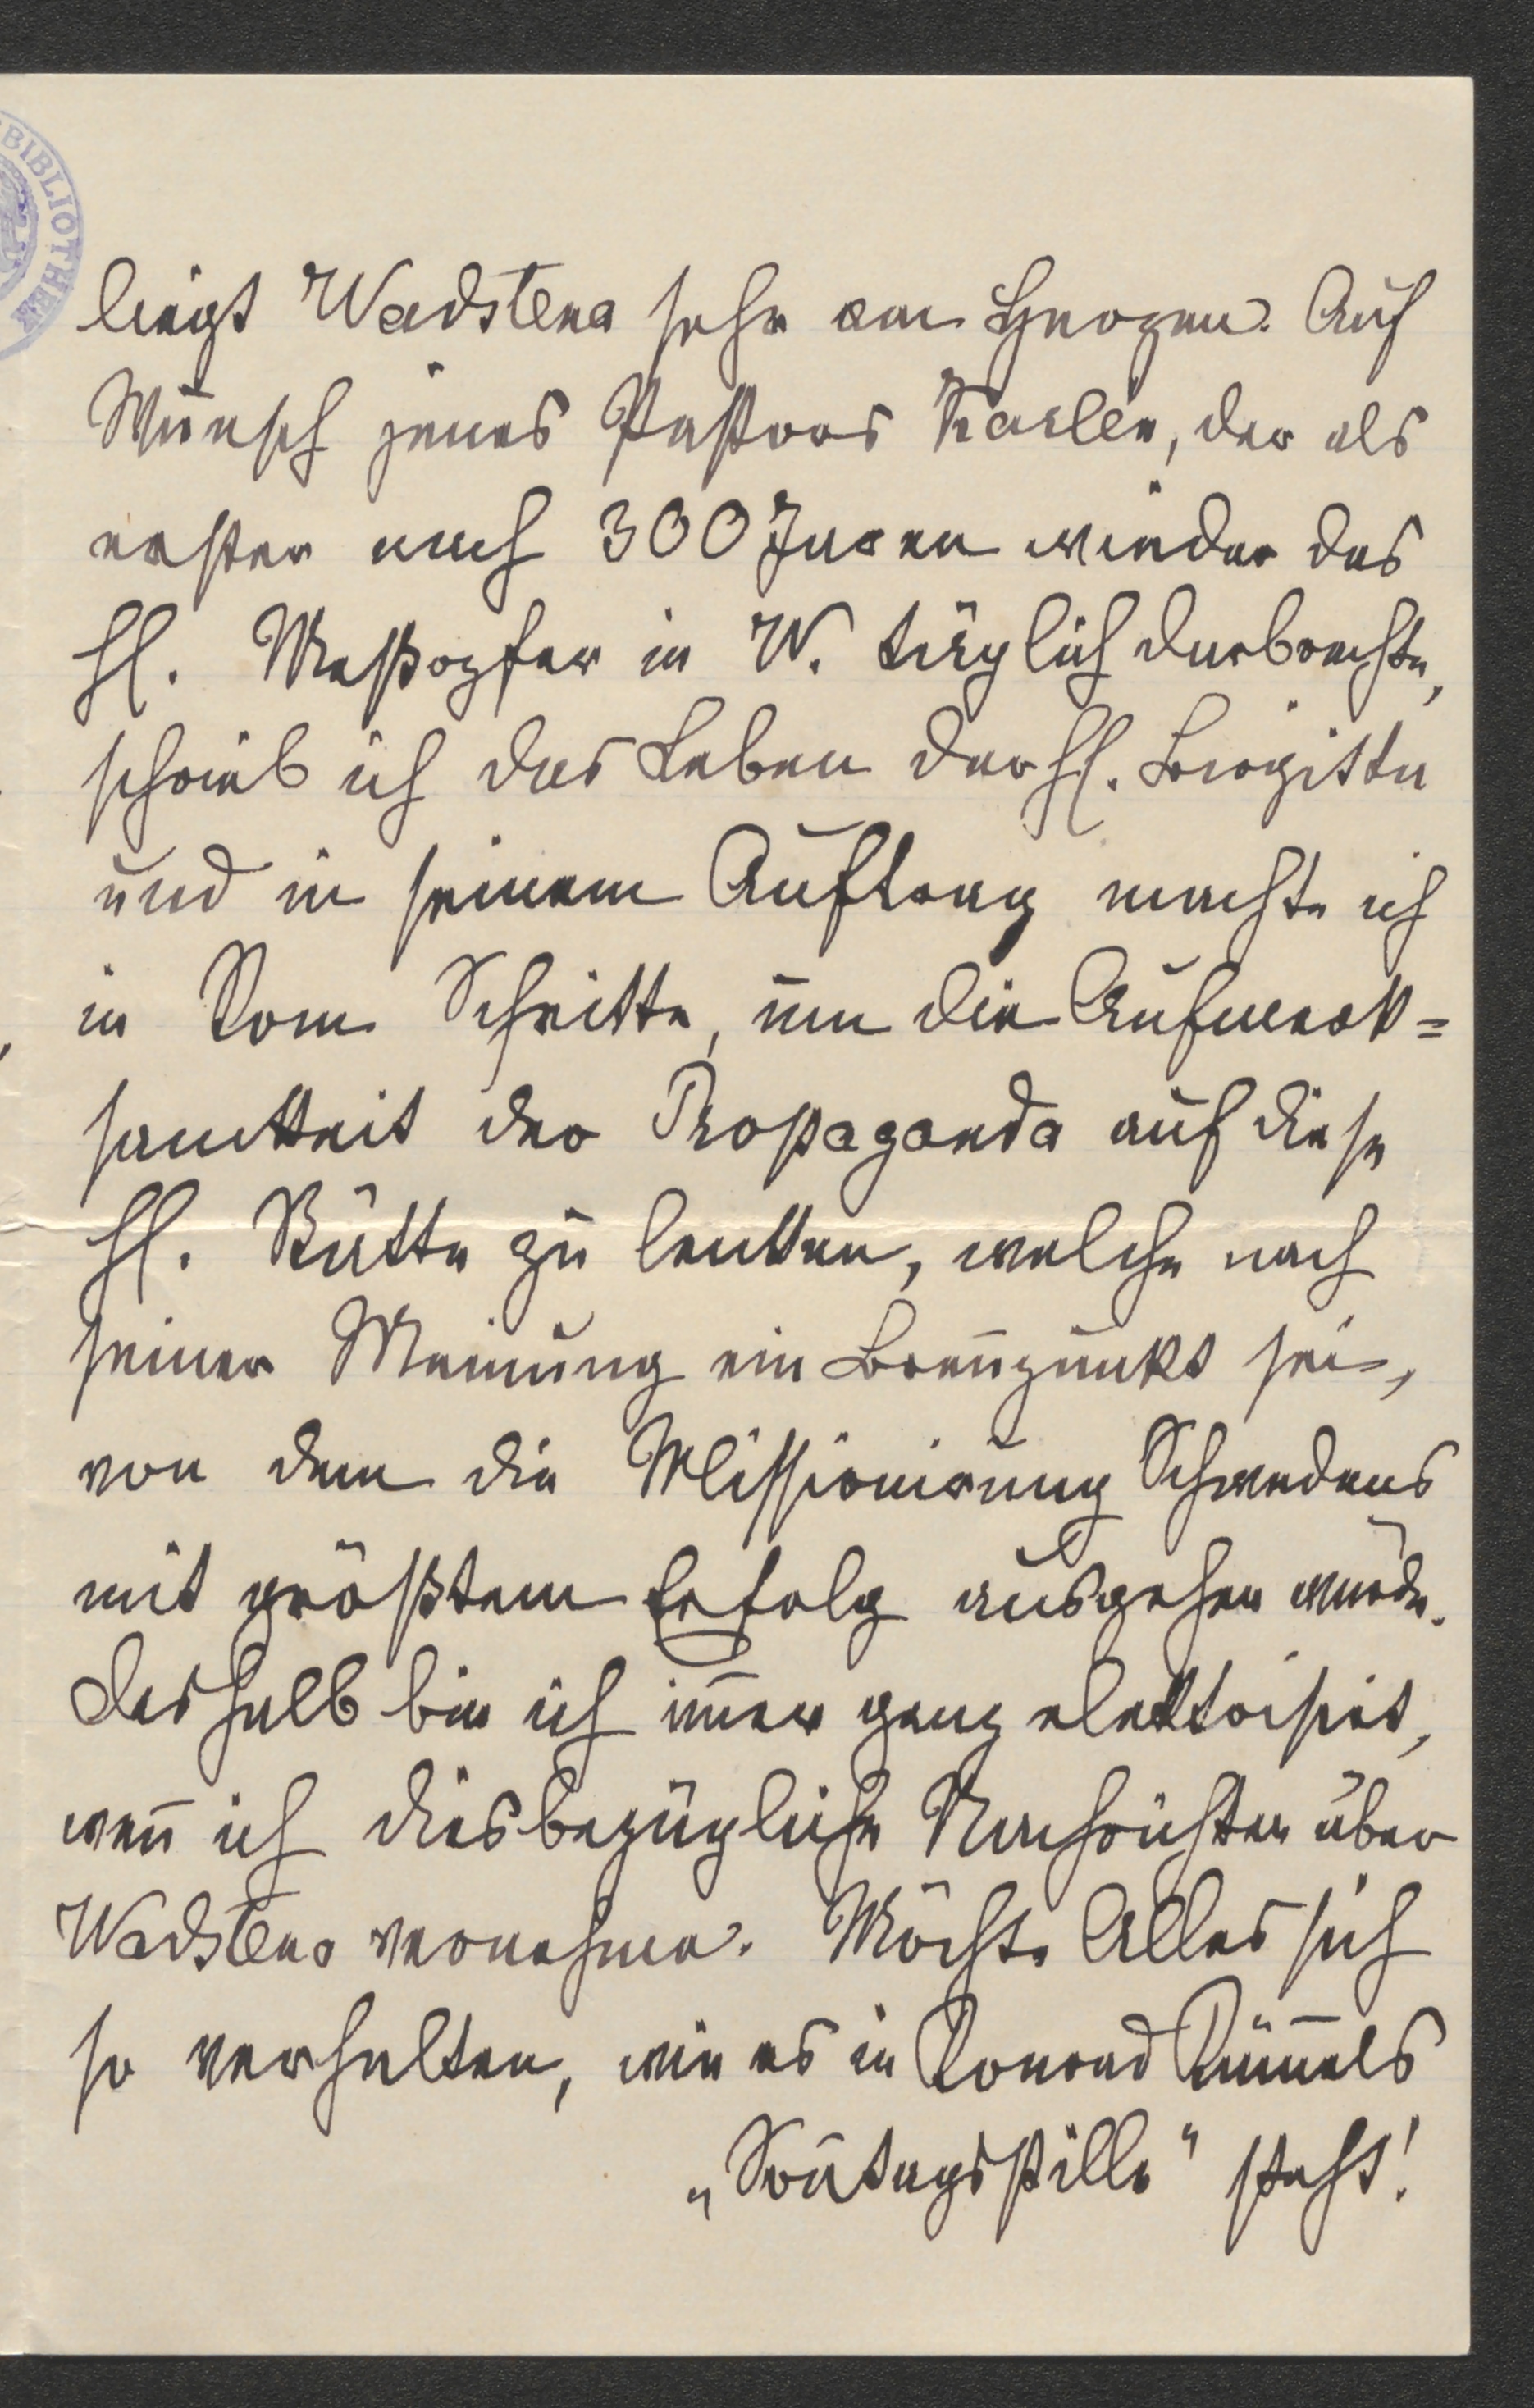 BIBLIOTHEK
liegt Wadstena sehr am Herzen. Auf
Wunsch jenes Pastors Karlen, der als
erster nach 300 Jaren wieder das
hl. Meßopfer in W. täglich darbrachte,
schrieb ich das Leben der hl. Birgitta
und in seinem Auftrag machte ich
in Rom Schritte, um die Aufmerk=
samkeit der Propaganda auf diese
hl. Stätte zu lenken, welche nach
seiner Meinung ein Breñpunkt sei,
von dem die Missionirung Schwedens
mit größtem Erfolg ausgehen würde.
Deshalb bin ich im̄er ganz elektrisirt,
weñ ich diesbezügliche Nachrichten über
Wadstena vernehme. Möchte Alles sich
so verhalten, wie es in Konrad Küm̄els
„Soñtagsstille" steht!